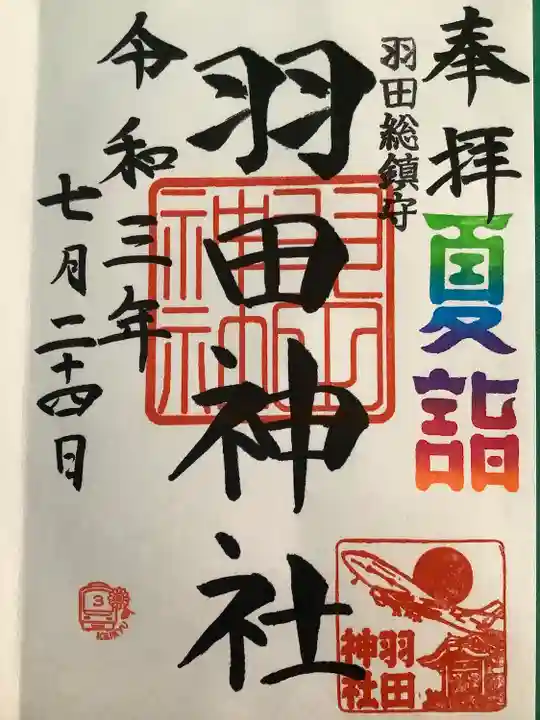 奉拝
夏詣
羽田総鎮守
羽田神社
羽田神社
令和三年
七月二十四日
羽田
神社
3
KEIKYU